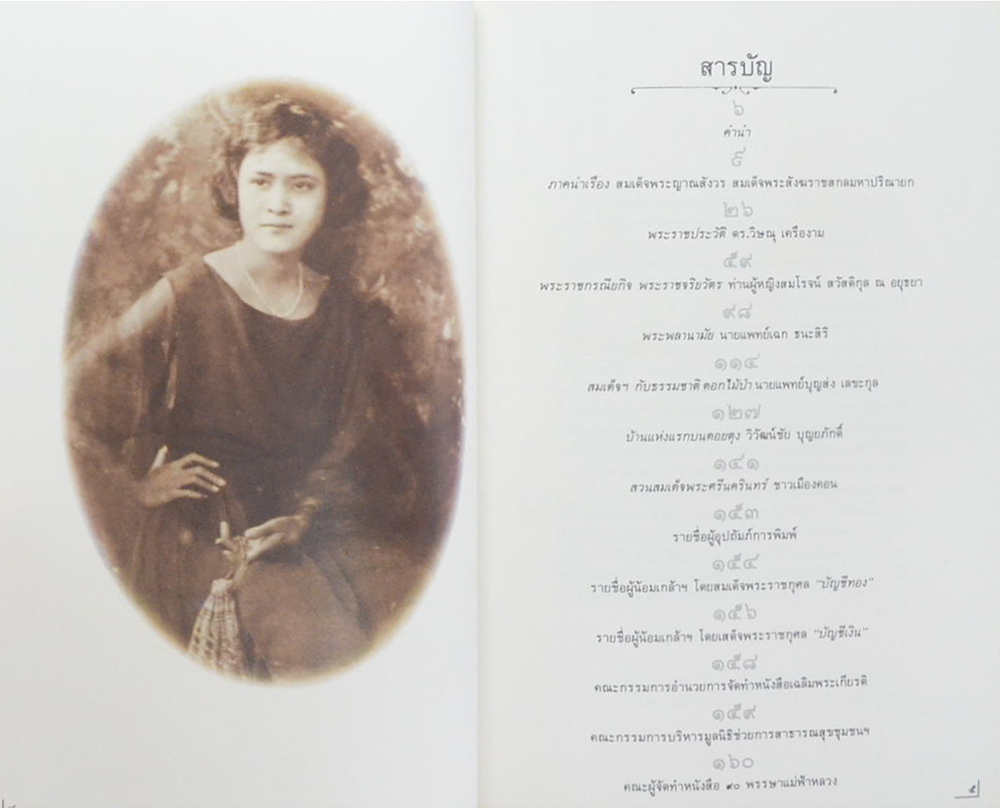 สารบัญ
๖
คำนำ
๙
ภาคนำเรื่อง สมเด็จพระญาณสังวร สมเด็จพระสังฆราชสกลมหาปริณายก
๒๖
พระราชประวัติ ดร.วิษณุ เครืองาม
๕๙
พระราชกรณียกิจ พระราชจริยวัตร ท่านผู้หญิงสมโรจน์ สวัสดิกุล ณ อยุธยา
๙๘
พระพลานามัย นายแพทย์เฉก ธนะสิริ
๑๑๔
สมเด็จฯ กับธรรมชาติ ดอกไม้ป่า นายแพทย์บุญส่ง เลขะกุล
๑๒๗
บ้านแห่งแรกบนดอยตุง วิวัฒน์ชัย บุญยภักดิ์
๑๔๑
สวนสมเด็จพระศรีนครินทร์ ชาวเมืองคอน
๑๕๓
รายชื่อผู้อุปถัมภ์การพิมพ์
๑๕๔
รายชื่อผู้น้อมเกล้าฯ โดยสมเด็จพระราชกุศล “บัญชีทอง”
๑๕๖
รายชื่อผู้น้อมเกล้าฯ โดยเสด็จพระราชกุศล “บัญชีเงิน”
๑๕๘
คณะกรรมการอำนวยการจัดทำหนังสือเฉลิมพระเกียรติ
๑๕๙
คณะกรรมการบริหารมูลนิธิช่วยการสาธารณสุขชุมชนฯ
๑๖๐
คณะผู้จัดทำหนังสือ ๙๐ พรรษาแม่ฟ้าหลวง
๕